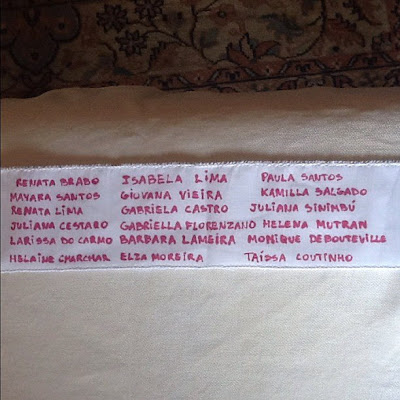 RENATA BRABO ISABELA LIMA PAULA SANTOS
MAYARA SANTOS GIOVANA VIEIRA KAMILLA SALGADO
RENATA LIMA GABRIELA CASTRO JULIANA SINIMBÚ
JULIANA CESTARO GABRIELLA FLORENZANO HELENA MUTRAN
LARISSA DO CARMO BARBARA LAMEIRA MONIQUE DEBOUTEVILLE
HELAINE CHARCHAR ELZA MOREIRA TAÍSSA COUTINHO